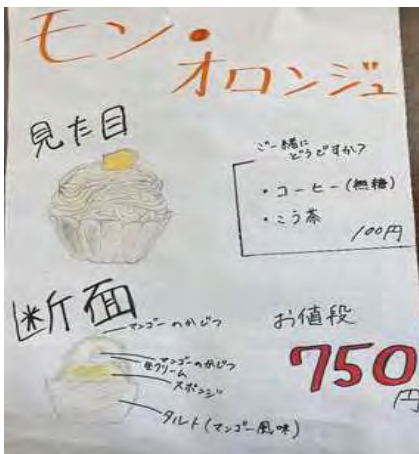 モン・
オロンジュ
見た目
ご一緒に
どうですか?
・コーヒー(無糖)
・こう茶
100円
断面
マンゴーのかじつ
マンゴーのかじつ
生クリーム
スポンジ
タルト(マンゴー風味)
お値段
750
円